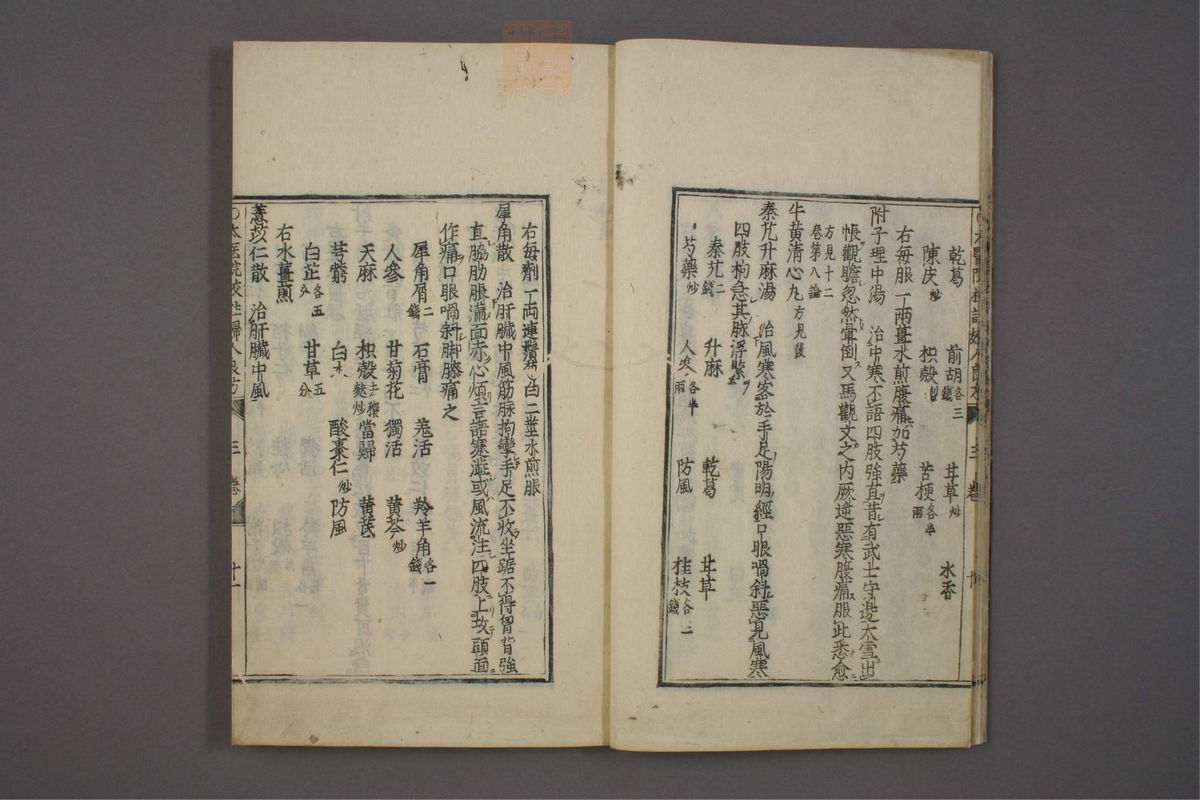 乾葛 前胡各三錢 甘草炒 木香
陳皮炒 枳殼製 苦梗各半兩
右每服一兩薑水煎腹痛加芍藥
附子理中湯 治中寒不語四肢強直昔有武士守邊大雪出
帳觀瞻忽然暈倒又馬觀文之内厥逆惡寒腹痛服此悉愈
方見十二卷第八論
牛黄清心丸方見後
秦艽升麻湯 治風寒客於手足陽明經口眼喎斜惡見風寒
四肢拘急其脉浮緊
秦艽二錢 升麻 乾葛 甘草
芍藥炒 人參各半兩 防風 桂枝各二錢
三卷
右每劑一両連鬚葱白二莖水煎服
犀角散 治肝臟中風筋脉拘攣手足不收坐踞不得胷背強
直脇肋脹滿面赤心煩言語蹇澁或風流注四肢上攻頭面
作痛口眼喎斜脚膝痛之
犀角屑二錢 石膏 羗活 羚羊角各一錢
人參 甘菊花 獨活 黄芩炒
天麻 枳殼去穰麩炒 當歸 黄芪
芎藭 白朮 酸棗仁炒 防風
白芷各五分 甘草五分
右水薑煎
薏苡仁散 治肝臟中風
〇太医院校註婦人良方 三卷 十一